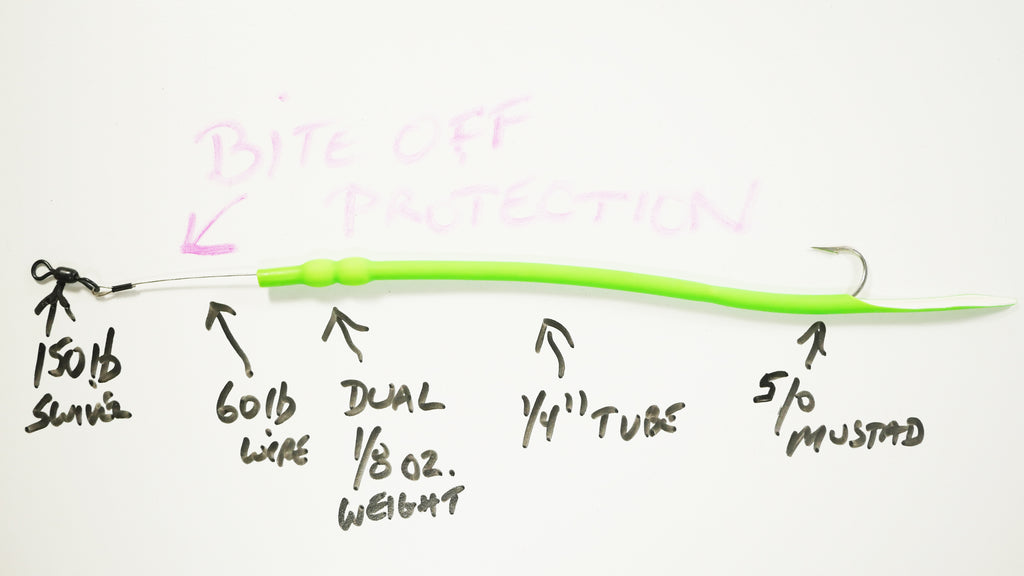 BITE OFF
PROTECTION
150lb
SWIVEL
60lb
WIRE
DUAL
1/8 OZ.
WEIGHT
1/4" TUBE
5/0
MUSTAD